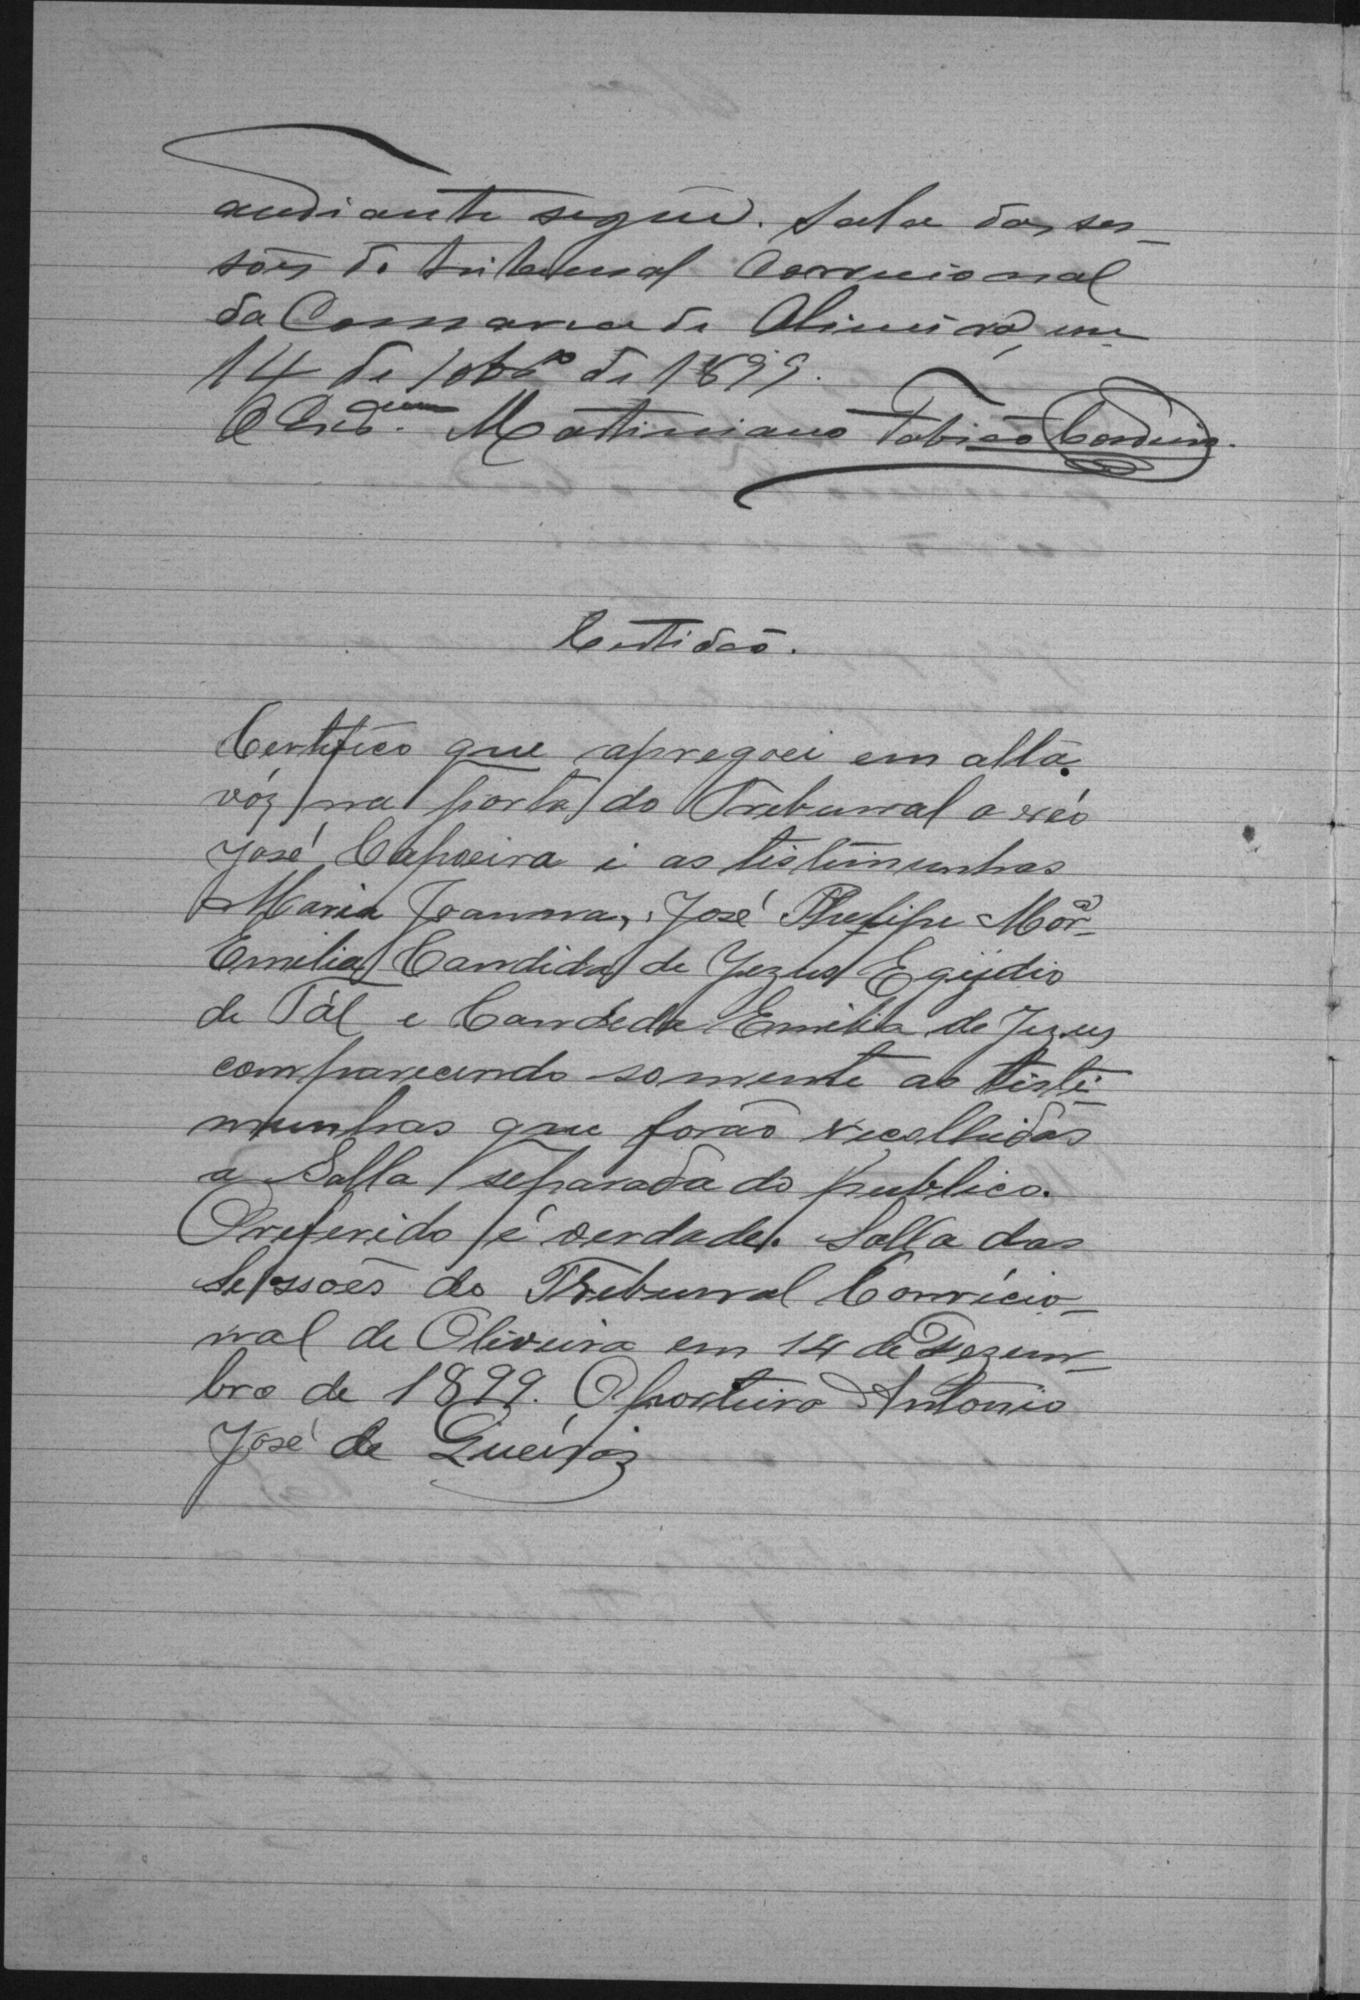 audiante segue. Sala das ses-
sões do tribunal Correccional
da Comarca de Oliveira, em
14 de 10bro de 1899.
O Martiniano Tobias
Certidão.
Certifico que apregoei em alta
vóz na porta do Trebunal o réo
José Capoeira i as tistimunhas
Maria Joanna, José Phelipe Mór.
Emilia Candida de Jezus Egydio
de Tál e Candeda Emilia de Jezus
comparecendo somente as tisti-
munhas que forão recolhidas
a Salla separada do publico.
O referido é verdade. Salla das
Sessoẽs do Trebunal Corricio-
nal de Oliveira em 14 de Dezem-
bro de 1899. O porteiro Antonio
José de Queiróz